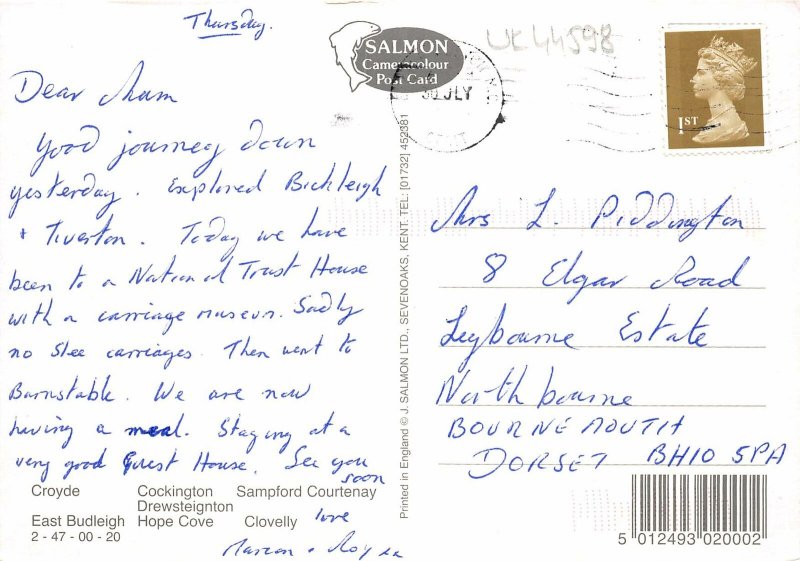 Thursday.
Dear Mum
Good journey down
yesterday. Explored Bickleigh
+ Tiverton. Today we have
been to a National Trust House
with a carriage museum. Sadly
no Slee carriages. Then went to
Barnstable. We are now
having a meal. Staying at a
very good Guest House. See you
soon
love
Marion +
SALMON
Cameracolour
Post Card
UK44598
30 JLY
1ST
Mrs L. Piddington
8 Elgar Road
Leybourne Estate
Northbourne
BOURNEMOUTH
DORSET BH10 5PA
Croyde Cockington Sampford Courtenay
Drewsteignton
East Budleigh Hope Cove Clovelly
2 - 47 - 00 - 20
Printed in England © J. SALMON LTD., SEVENOAKS, KENT. TEL: [01732] 452381
5 012493 020002